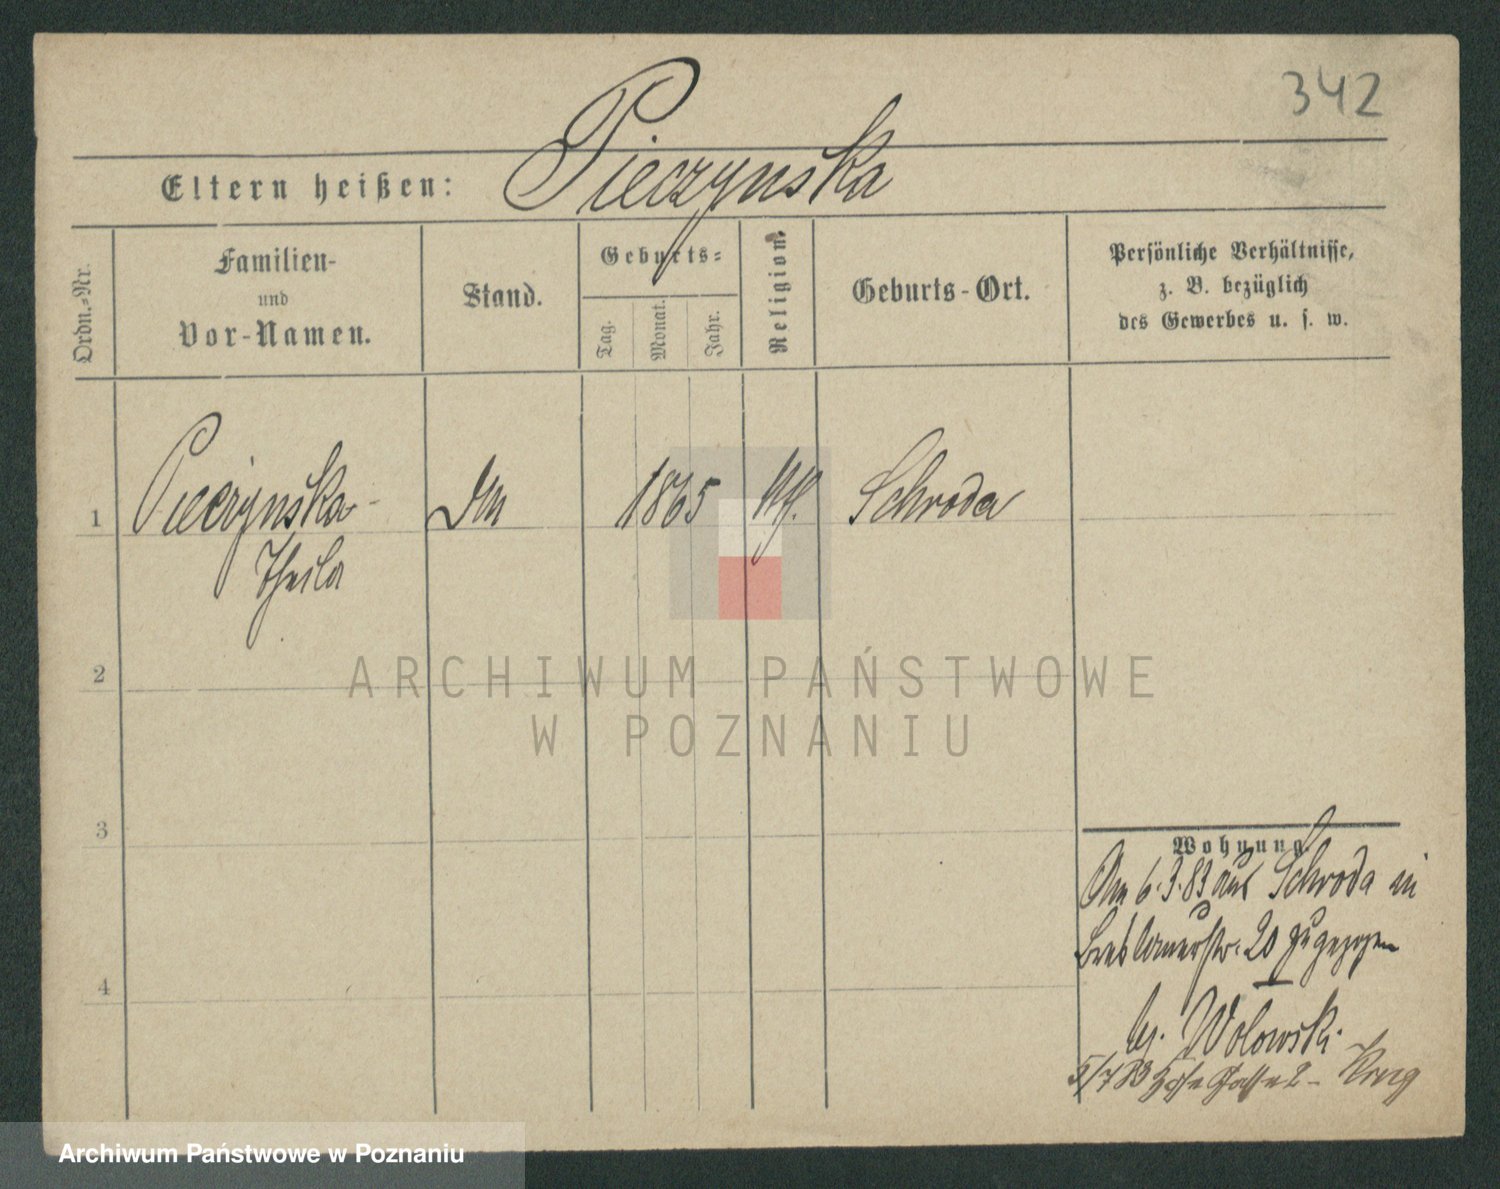 342
Eltern heißen: Pieczynska
Ordn.-Nr.
Familien-
und
Vor-Namen.
Stand.
Geburts-
Tag.
Monat.
Jahr.
Religion.
Geburts-Ort.
Persönliche Verhältnisse,
z. B. bezüglich
des Gewerbes u. s. w.
1 Pieczynska 1865 Schroda
Theila
2
3
4
ARCHIWUM PAŃSTWOWE
W POZNANIU
Wohnung.
Am 6.3.83 aus Schroda in
Breslauerstr. 20 zugezogen
bj. Wolowski.
5/7 83 2 - Krug
Archiwum Państwowe w Poznaniu